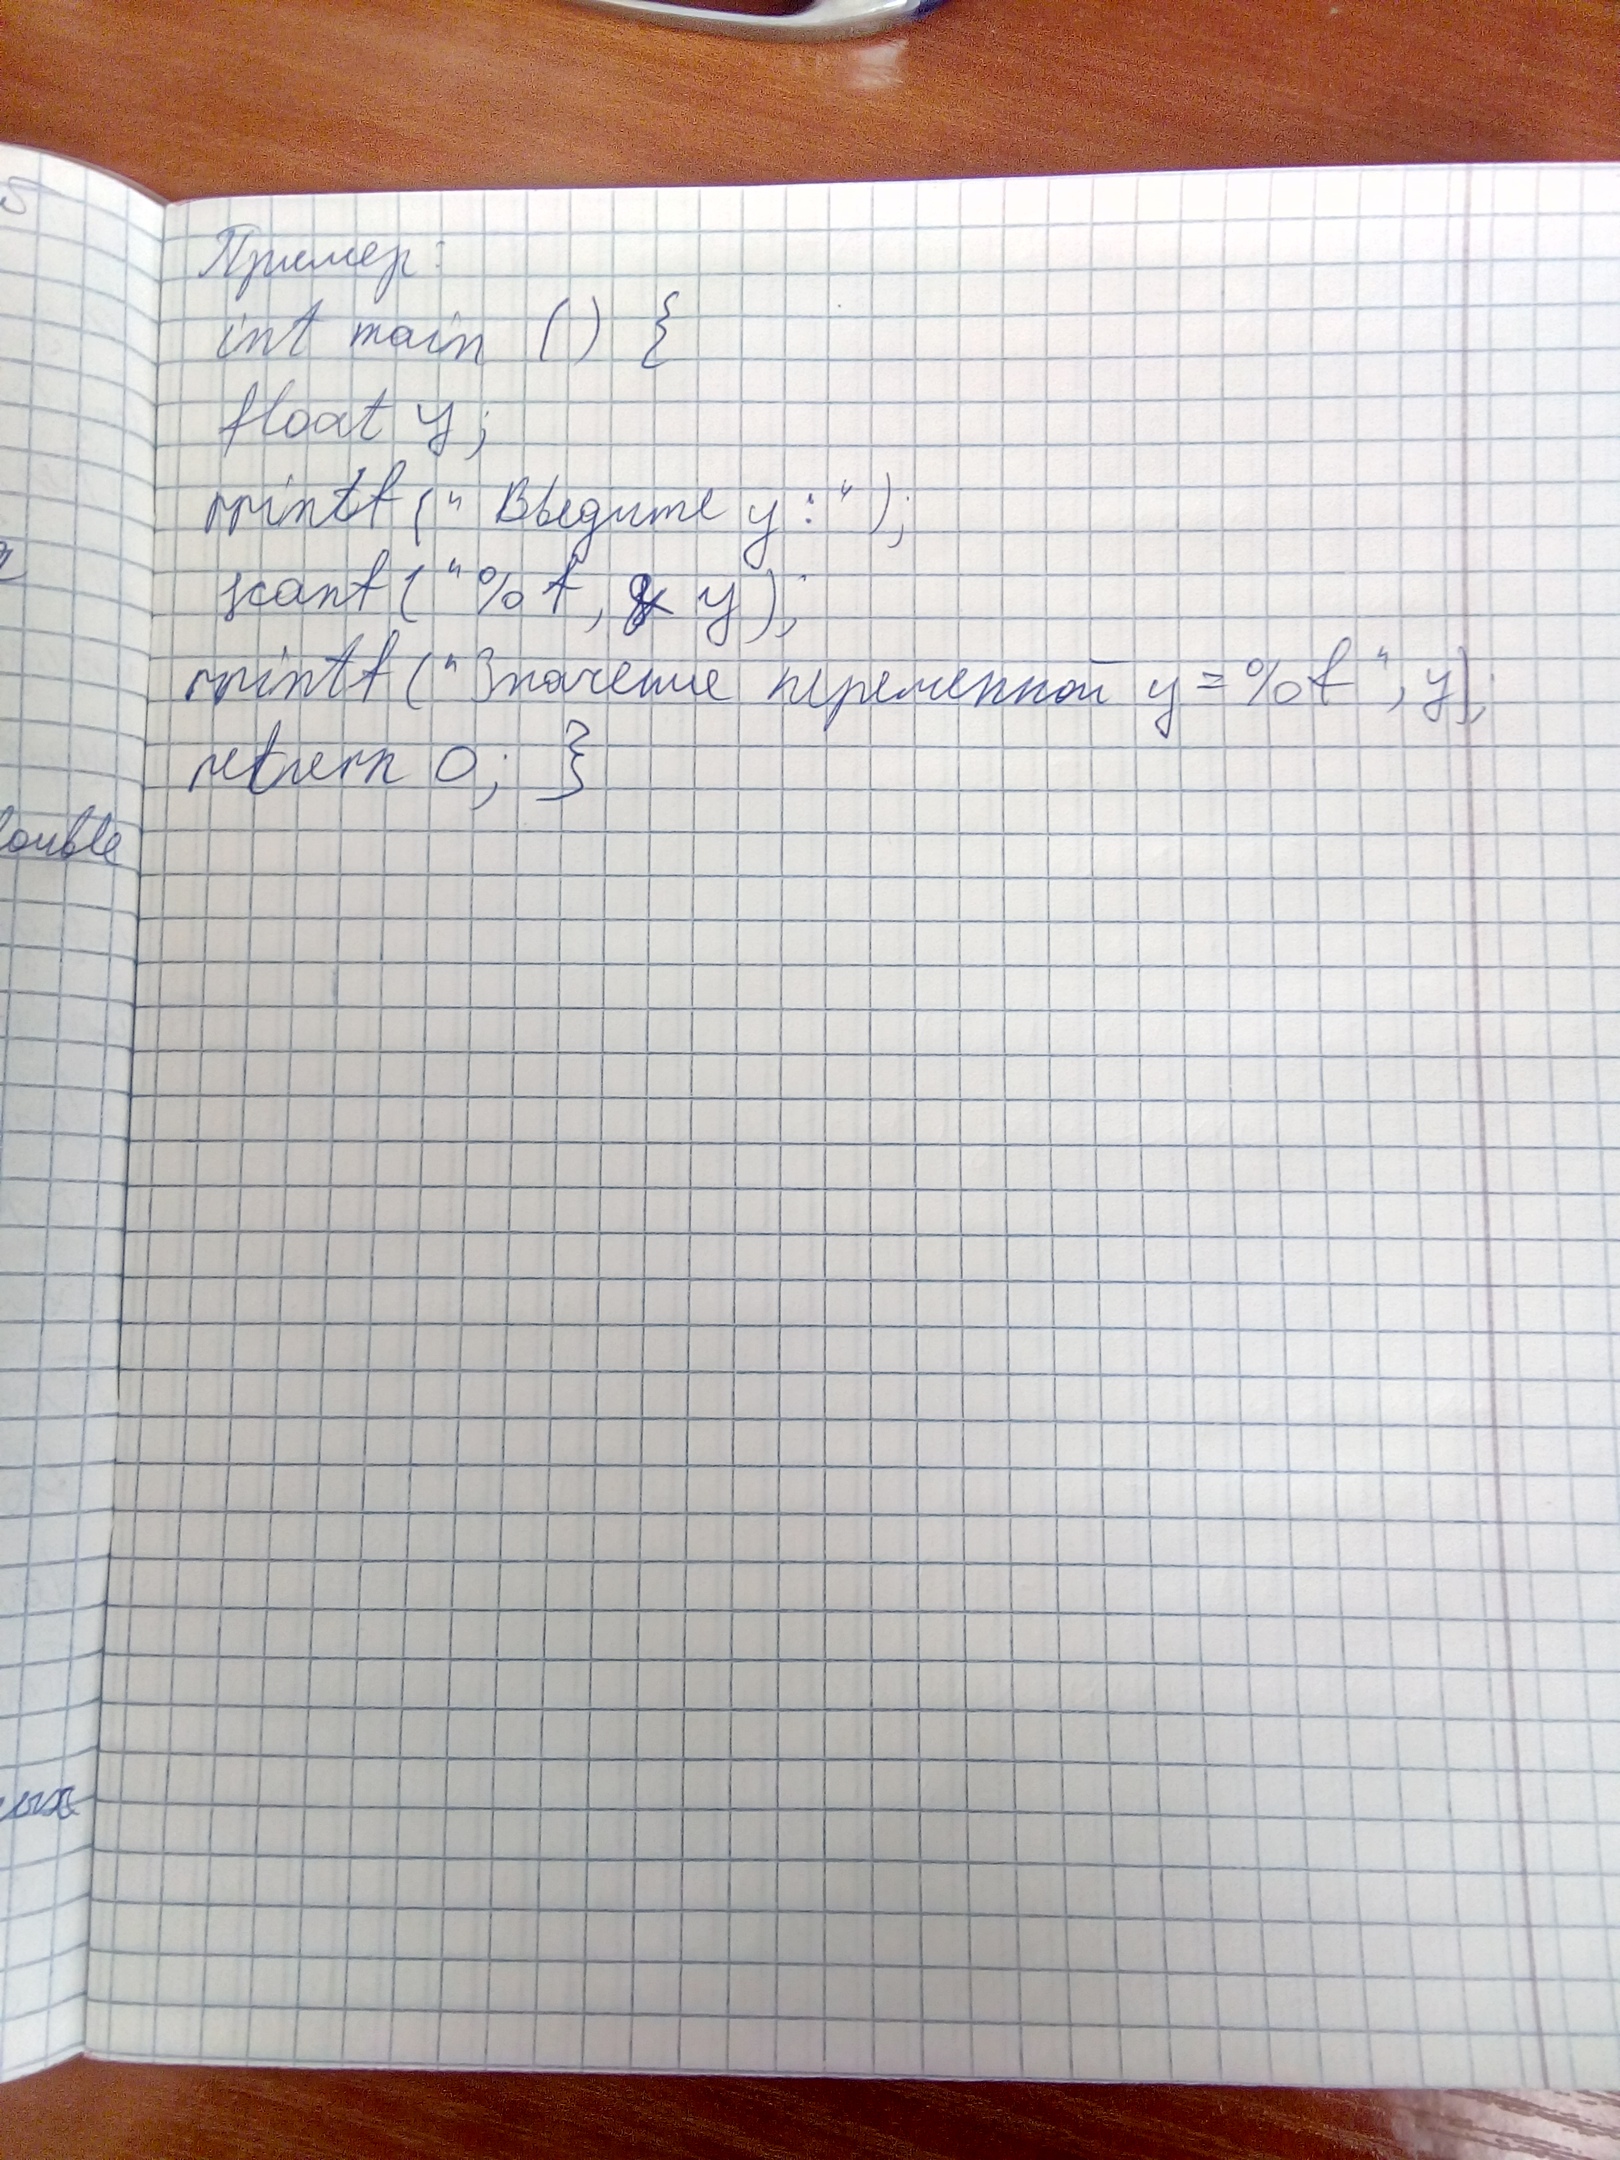 Пример:
int main () {
float y;
printf (" Введите y : ");
scanf ("%f, & y);
printf ("Значение переменной y = %f", y);
return 0; }
double